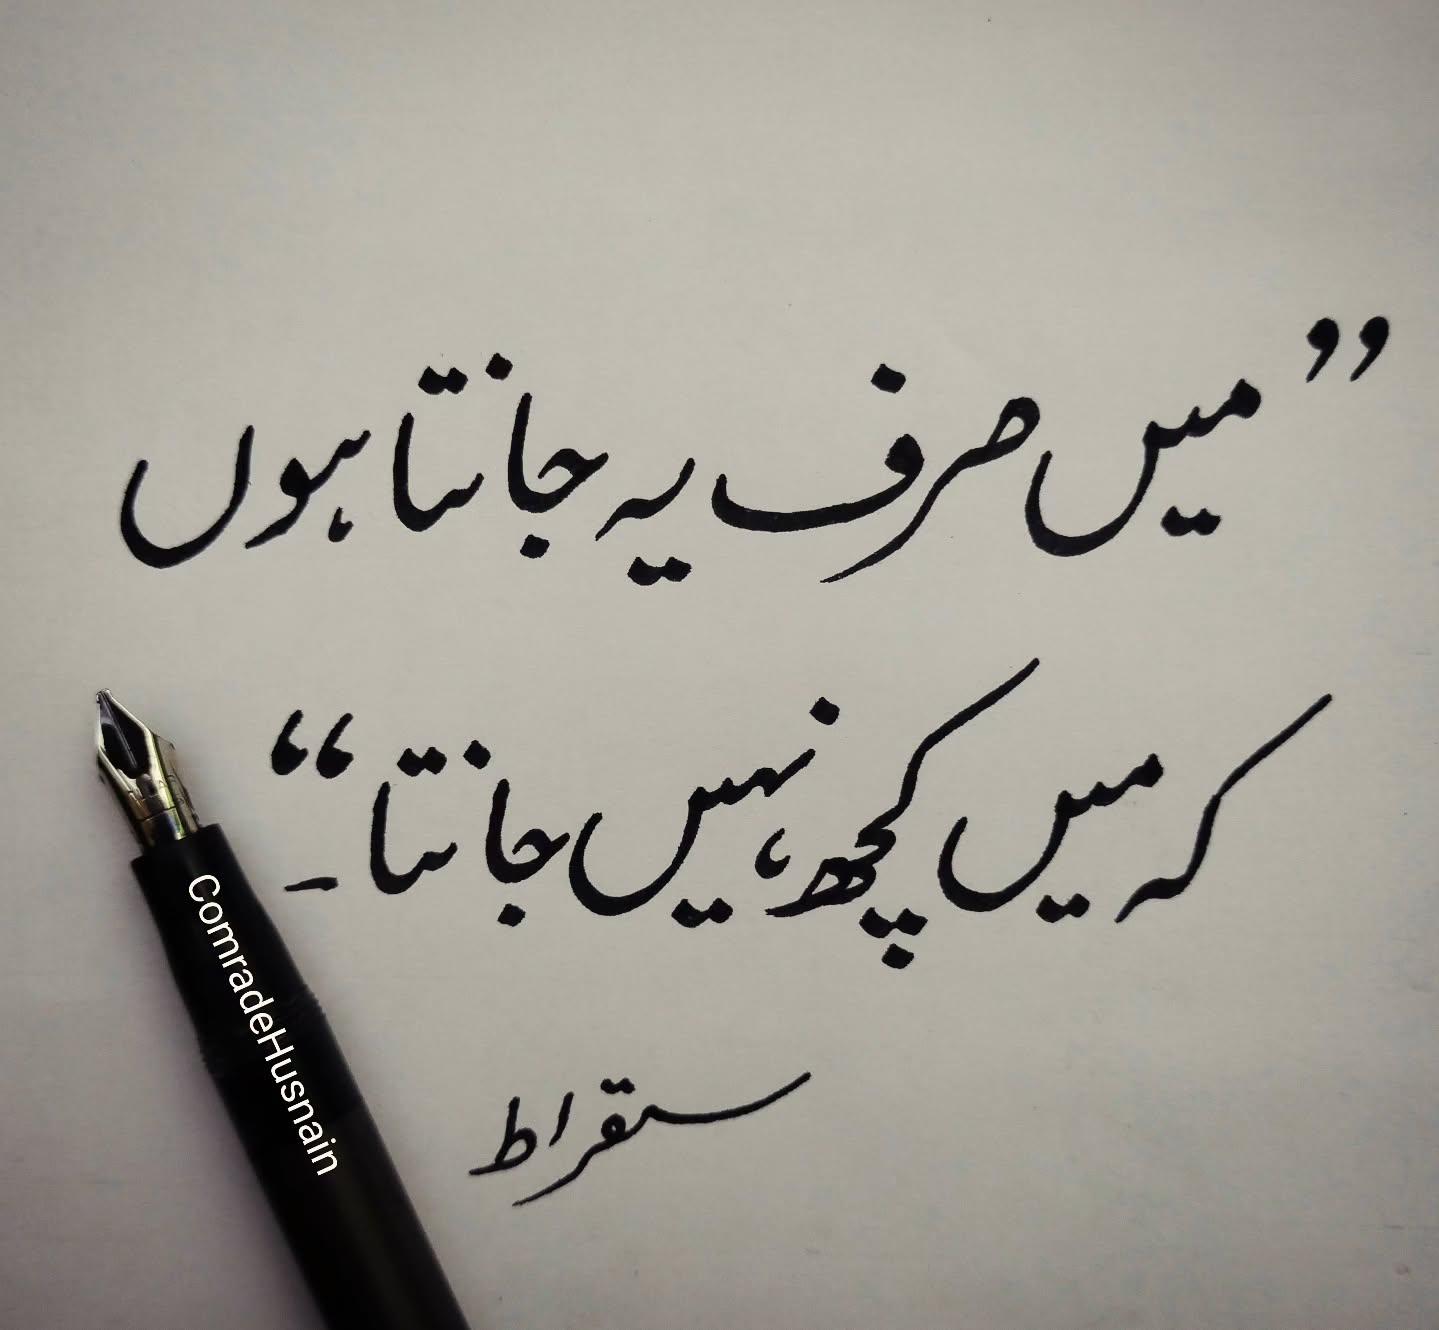 ”میں صرف یہ جانتا ہوں
کہ میں کچھ نہیں جانتا۔“
سقراط
ComradeHusnain